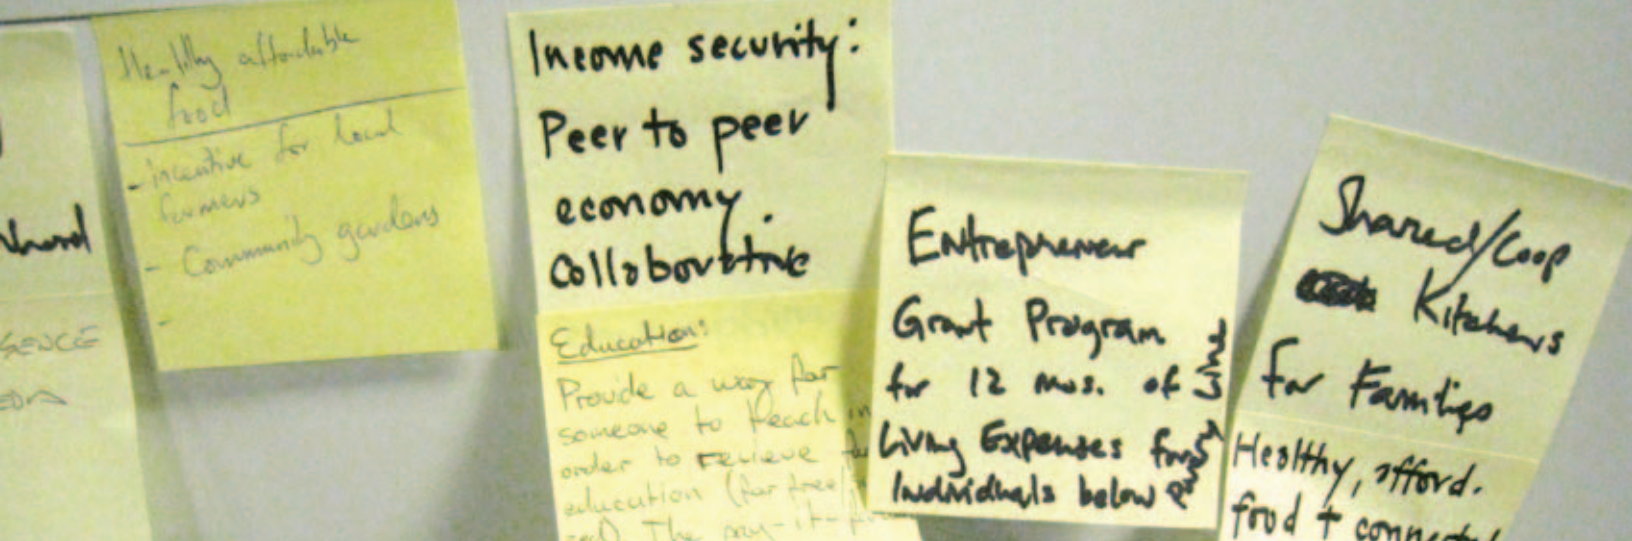 Healthy affordable
food
- incentive for local
farmers
- Community gardens
-
Income security:
Peer to peer
economy.
Collaborative
Education:
Provide a way for
someone to teach in
order to recieve
education (for free
The pay-it-
Entrepreneur
Grant Program
for 12 mos. of
Living Expenses for
Individuals below
poverty line
Shared/Coop
Kitchens
for Families
Healthy, afford.
food + connected